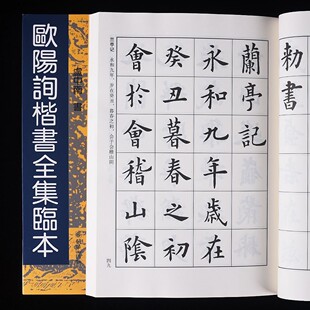 歐陽詢楷書全集臨本
勅書
蘭亭記
永和九年歲在
癸丑暮春之初
會於會稽山陰
四九